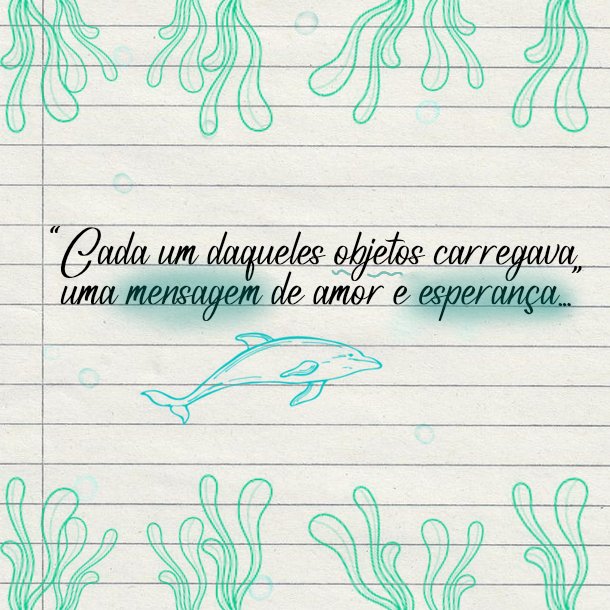 “Cada um daqueles objetos carregava
uma mensagem de amor e esperança...”